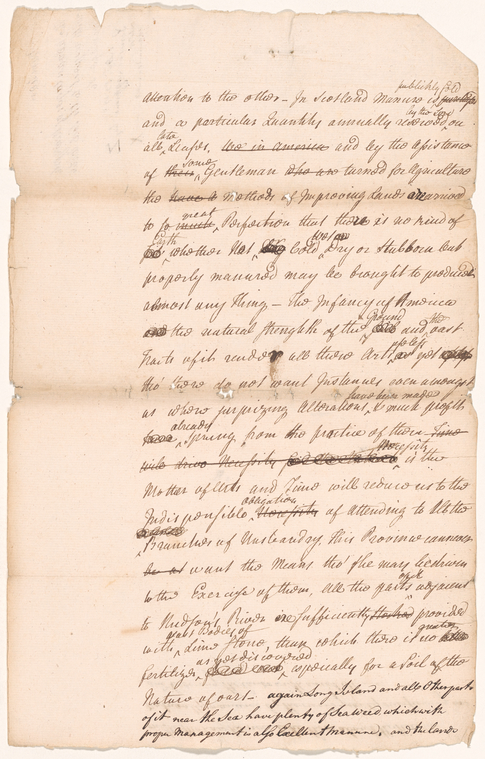 publickly sold
attention to the other – In Scotland Manure is
by the
and a particular Quantity annually reserved on
late
all Leases, and by the Assistance
some
of their Gentlemen who are turned for Agriculture
the methods of Improving Lands are arrived
great
to so much Perfection that there is no kind of
Earth Wet or
whether Hot Cold, Dry or Stubborn but
properly manured may be brought to produce
almost any thing – the Infancy of America
Ground the
and the natural Strength of the and vast
useless
Tracts of it render all these Arts as yet
tho' there do not want Instances even amongst
have been made
us where surprizing Alterations, & much profits
already
Spring from the practice of these Time
Necessity
will drive Necessity is the
Mother of Arts and Time will reduce us to the
obligation
Indispensible Necessity of attending to these
Branches of Husbandry, this Province cannot
be at want the Means tho' she may be driven
of it
to the Exercise of them, all the parts adjacent
to Hudson's River are sufficiently provided
vast Bodies of greater
with Lime Stone, than which there is no
as yet discovered
fertilizer, especially for a Soil of the
Nature of ours – again Long Island and also Other parts
of it near the Sea have plenty of Sea weed which with
proper management is also Excellent manure, and the lands